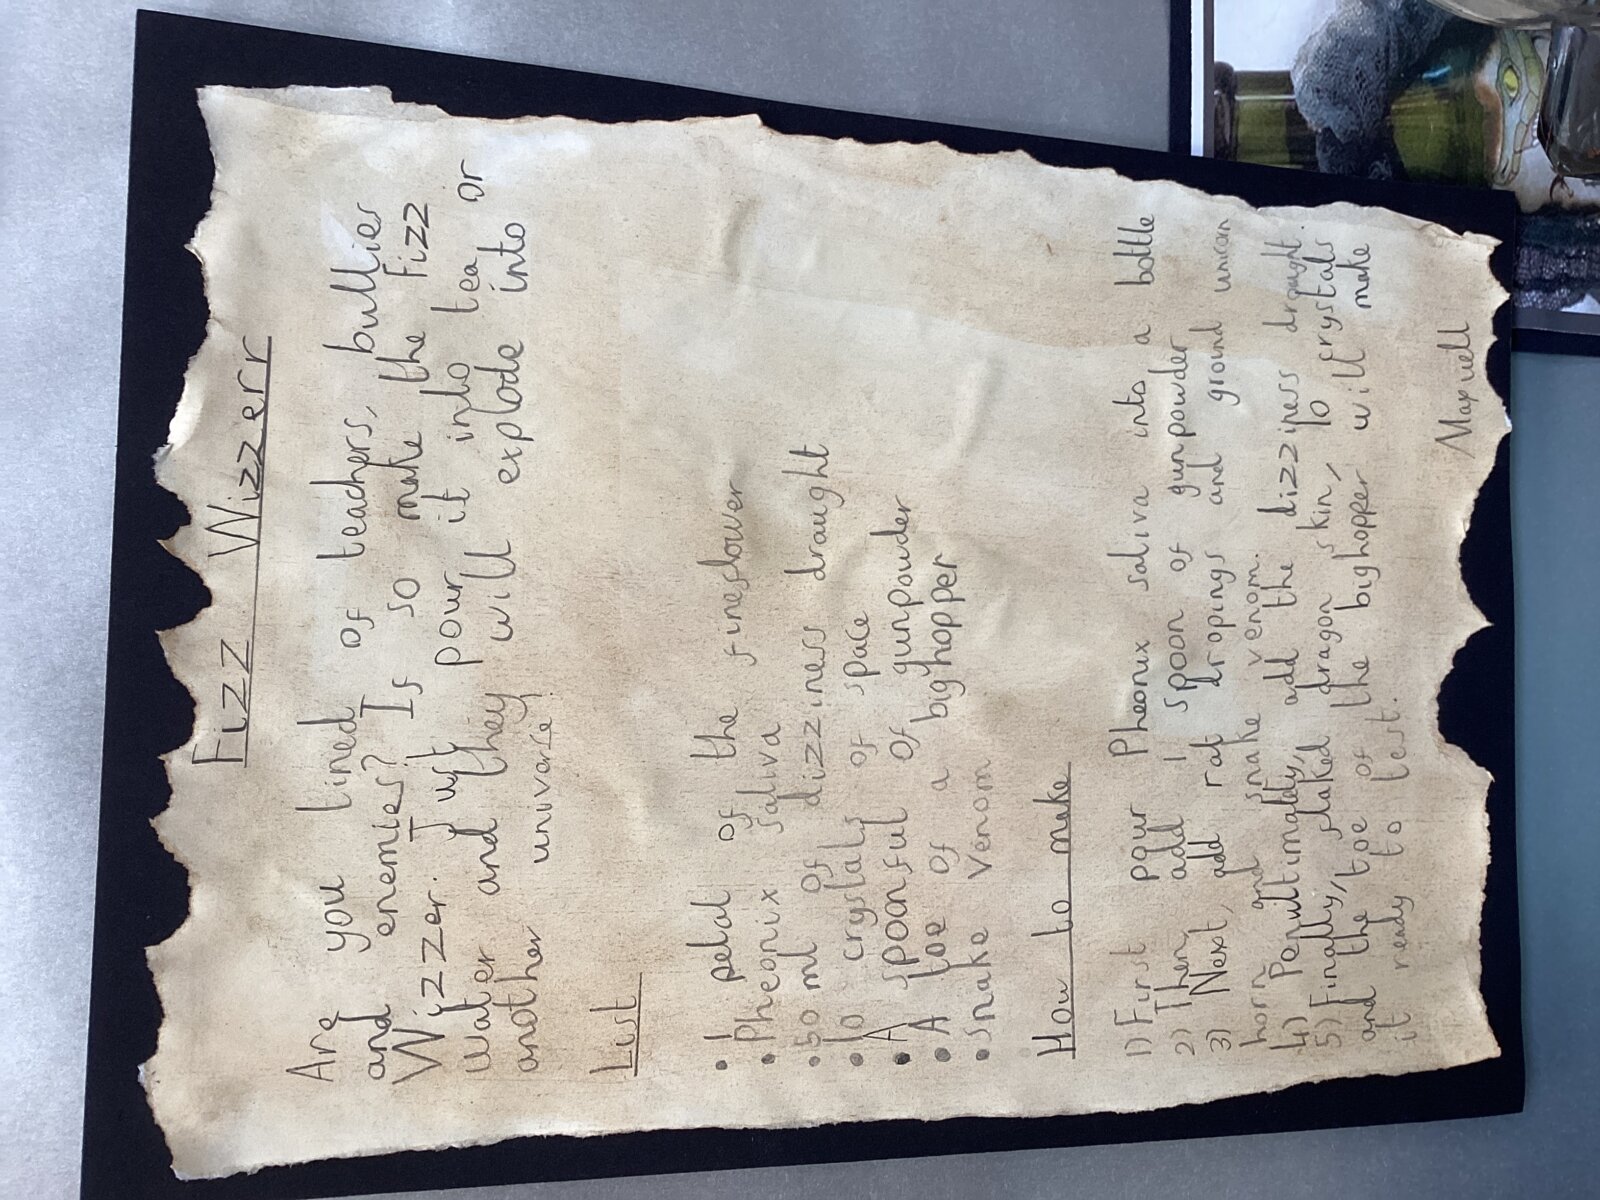 Fizz Wizzerr
Are you tired of teachers, bullies
and enemies? Is so make the Fizz
Wizzer. Just pour it into tea or
water and they will explode into
another univerce!
List
• 1 petal of the fireflower
• Pheonix saliva
• 50 ml of dizziness draught
• 10 crystals of space
• A spoonful of gunpowder
• A toe of a bighopper
• snake venom
How to make
1) First pour Pheonix saliva into a bottle
2) Then add 1 spoon of gunpowder
3) Next, add rat dropings and ground unicorn
horn and snake venom.
4) Penultimatley, add the dizziness draught.
5) Finally, flaked dragon skin, 10 crystals
and the toe of the bighopper will make
it ready to test.
Maxwell